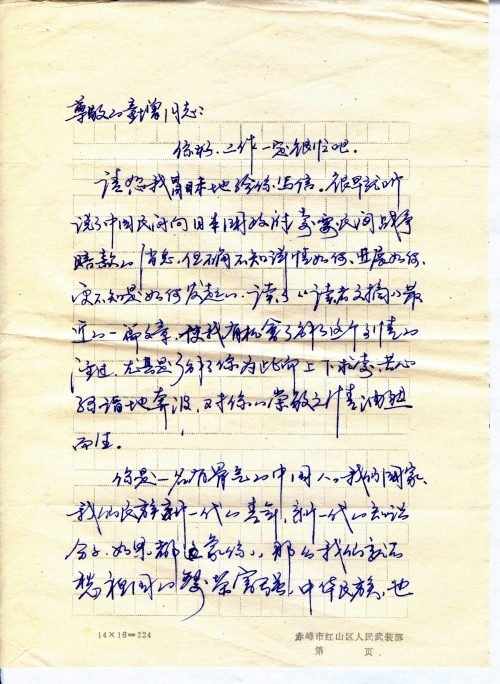 尊敬的童增同志:
你好,工作一定很忙吧。
请恕我冒昧地给你写信。很早就听
说了中国民间向日本国政府索要民间战争
赔款的消息,但不确不知详情如何、进展如何,
更不知是如何发起的。读了《读者文摘》最
近的一篇文章,使我有机会了解这个事情的
经过,尤其是了解你为此而上下求索、苦心
孤诣地奔波,对你的崇敬之情油然
而生。
你是一名有骨气的中国人。我们国家、
我们民族新一代的青年,新一代的知识
分子,如果都这象你,那么我们就不
愁祖国的繁荣富强,中华民族也
14×16=224
赤峰市红山区人民武装部
第 页